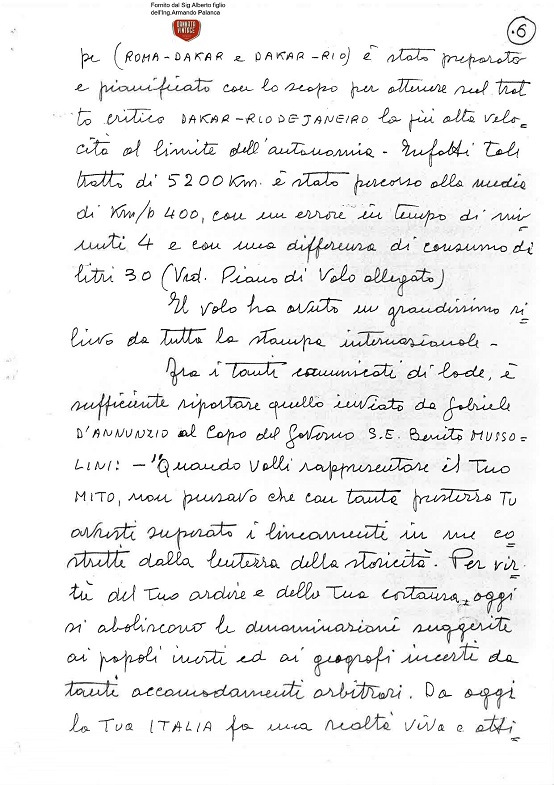 Fornito dal Sig Alberto figlio
dell'Ing.Armando Palanca
GARAGE
VINTAGE
.6
pe (ROMA-DAKAR e DAKAR-RIO) è stato preparato
e pianificato con lo scopo per ottenere sul trat
to critico DAKAR-RIO DE JANEIRO la più alta velo=
cità al limite dell'autonomia - Infatti tale
tratto di 5200 Km. è stato percorso alla media
di Km/h 400, con un errore in tempo di mi=
nuti 4 e con una differenza di consumo di
litri 30 (Ved. Piano di Volo allegato)
Il volo ha avuto un grandissimo ri=
lievo da tutta la stampa internazionale -
Fra i tanti comunicati di lode, è
sufficiente riportare quello inviato da Gabriele
D'ANNUNZIO al Capo del Governo S.E. Benito MUSSO=
LINI: - "Quando volli rappresentare il Tuo
MITO, non pensavo che con tanta prestezza Tu
avresti superato i lineamenti in me co=
strette dalla lentezza della storicità. Per vir=
tù del Tuo ardire e della Tua costanza, oggi
si aboliscono le denominazioni suggerite
ai popoli inerti ed ai geografi incerti da
tanti accomodamenti arbitrari. Da oggi
la Tua ITALIA fa una realtà viva e atti=